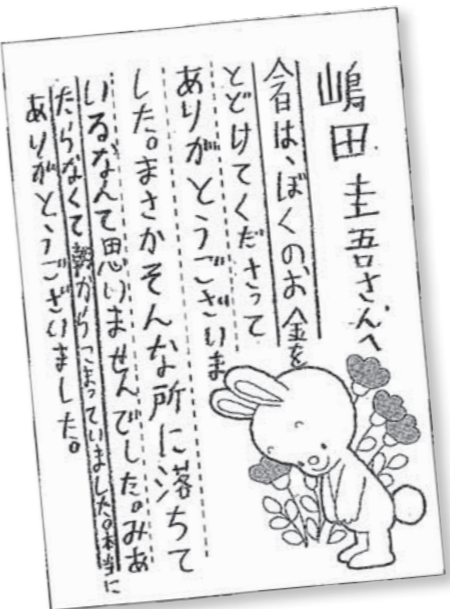 嶋田圭吾さんへ
今日は、ぼくのお金を
とどけてくださって
ありがとうございま
した。まさかそんな所に落ちて
いるなんて思いませんでした。みあ
たらなくて朝からこまっていました。本当に
ありがとうございました。